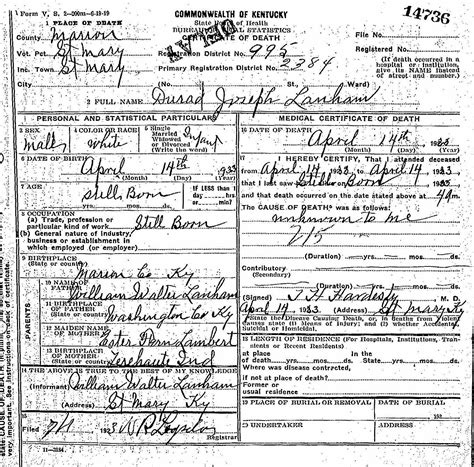 Form V. S. 2
14736
COMMONWEALTH OF KENTUCKY
1 PLACE OF DEATH
State Board of Health
BUREAU OF VITAL STATISTICS
CERTIFICATE OF DEATH
County Marion
File No.
Vot. Pct. St Mary
Registration District No. 995
Registered No.
Inc. Town St Mary
Primary Registration District No. 2384
(If death occurred in a hospital or institution, give its NAME instead of street and number.)
City (No. St., Ward)
2 FULL NAME Durad Joseph Lanham
PERSONAL AND STATISTICAL PARTICULARS
MEDICAL CERTIFICATE OF DEATH
3 SEX Male
4 COLOR OR RACE White
5 Single Married Widowed or Divorced (Write the word) Infant
16 DATE OF DEATH
April 14th 1933
(Month) (Day) (Year)
6 DATE OF BIRTH
April 14th 1933
(Month) (Day) (Year)
17 I HEREBY CERTIFY, That I attended deceased
from April 14 1933 to April 14 1933
that I last saw Still Born
7 AGE Still Born
yrs. mos. ds.
IF LESS than 1 day hrs. or min.?
and that death occurred on the date stated above at 4 a m.
The CAUSE OF DEATH was as follows:
unknown to me
215
8 OCCUPATION
(a) Trade, profession or particular kind of work Still Born
(b) General nature of industry, business or establishment in which employed (or employer)
(Duration) yrs. mos. ds.
Contributory
(Secondary)
(Duration) yrs. mos. ds.
9 BIRTHPLACE
(State or country)
Marion Co Ky
10 NAME OF FATHER William Walter Lanham
(Signed) J H Hardesty
April 14 1933 (Address) St Mary Ky
PARENTS
11 BIRTHPLACE OF FATHER
(State or country) Washington Co Ky
State the Disease Causing Death, or, in Deaths from Violent Causes state (1) Means of Injury; and (2) whether Accidental, Suicidal or Homicidal.
12 MAIDEN NAME OF MOTHER Ester Fern Lambert
18 LENGTH OF RESIDENCE (For Hospitals, Institutions, Transients or Recent Residents)
13 BIRTHPLACE OF MOTHER
(State or country) Terehaute Ind
At place of death yrs. mos. ds. In the State yrs. mos. ds.
Where was disease contracted,
if not at place of death?
14 THE ABOVE IS TRUE TO THE BEST OF MY KNOWLEDGE
(Informant) William Walter Lanham
Former or usual residence
(Address) St Mary Ky
19 PLACE OF BURIAL OR REMOVAL
DATE OF BURIAL
15
Filed 1923
20 UNDERTAKER
ADDRESS